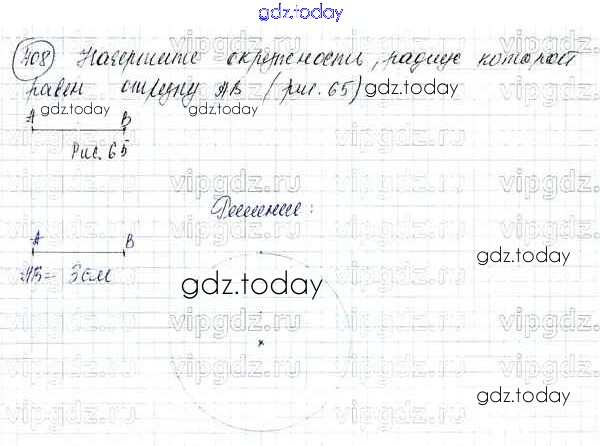 gdz.today
408 Начертите окружность, радиус которой
равен отрезку AB (рис. 65) gdz.today
gdz.today
A B
Рис. 65
vipgdz.ru
Решение:
A B
AB = 3см
gdz.today
gdz.today
gdz.today